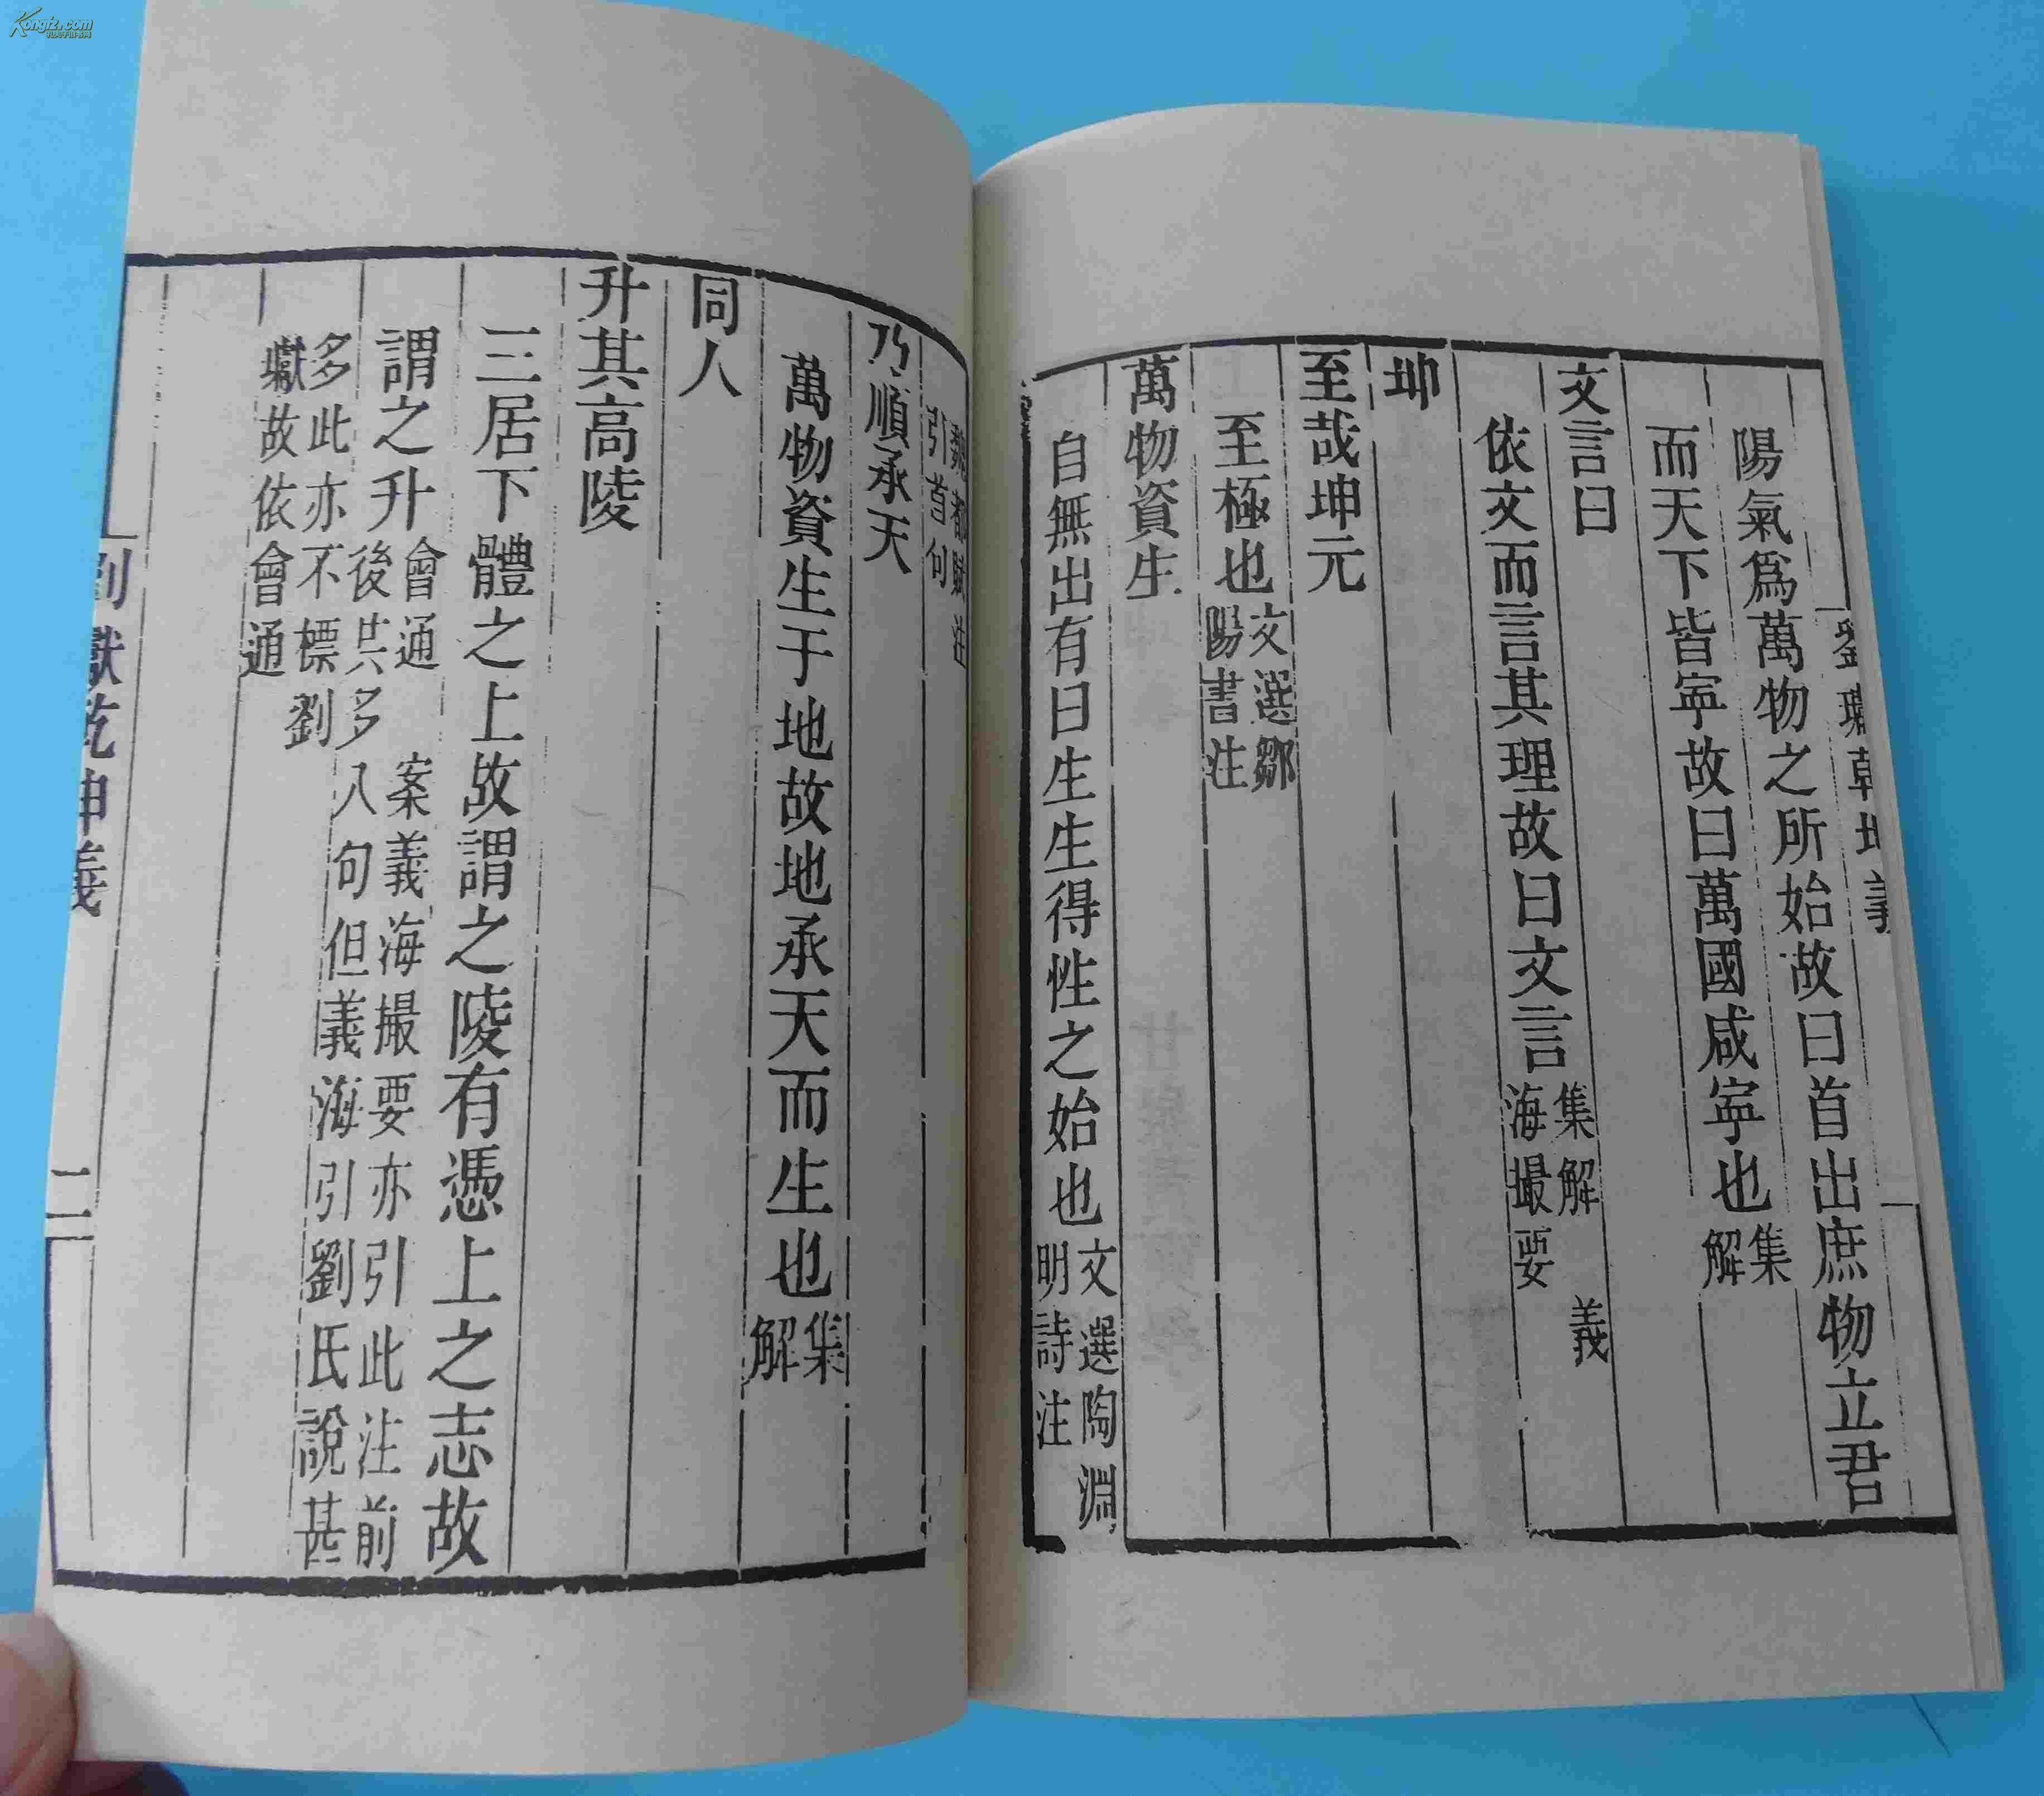 劉瓛乾坤義
陽氣爲萬物之所始故曰首出庶物立君
而天下皆寧故曰萬國咸寧也集
解
文言曰
依文而言其理故曰文言集解　義
海撮要
坤
至哉坤元
至極也文選鄒
陽書注
萬物資生
自無出有曰生生得性之始也文選陶淵
明詩注
魏都賦注
引首句
乃順承天
萬物資生于地故地承天而生也集
解
同人
升其高陵
三居下體之上故謂之陵有憑上之志故
謂之升會通　案義海撮要亦引此注前
後共多八句但義海引劉氏說甚
多此亦不標劉
瓛故依會通
劉瓛乾坤義
二
Kongfz.com